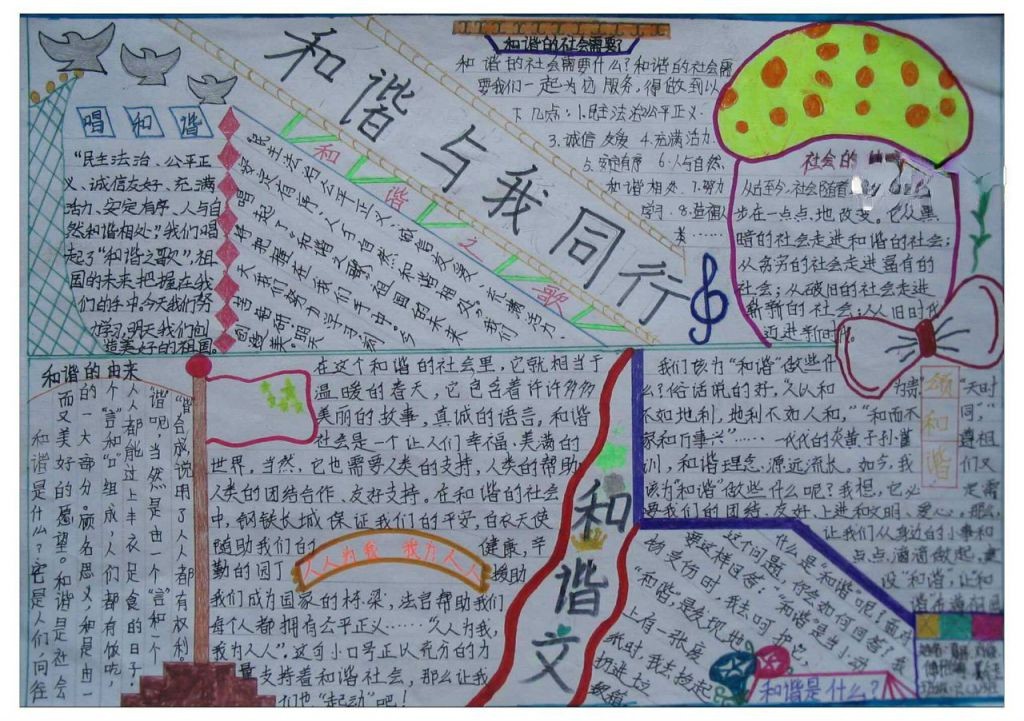 和谐与我同行
唱和谐
“民主法治、公平正
义、诚信友好、充满
活力、安定有序、人与自
然和谐相处”我们唱
起了“和谐之歌”,祖
国的未来把握在我
们的手中。今天我们努
力学习,明天我们创
造美好的祖国。
和谐之歌
民主法治公平正义,诚信友爱,充满活力,
安定有序,人与自然和谐相处,我们
唱起了“和谐之歌”,祖国的未来
和谐的社会需要
和谐的社会需要什么?和谐的社会需
要我们一起为它服务,得做到以
下几点:1.民主法治公平正义.
3.诚信友爱 4.充满活力.
5.安定有序 6.人与自然.
和谐相处.7.努力
学习.8.
社会的
从古至今,社会随着
步在一点点地改变。它从黑
暗的社会走进和谐的社会;
从贫穷的社会走进富有的
社会;从破旧的社会走进
崭新的社会;从旧时代
迈进新时代。
和谐的由来
和谐是什么?它是人们向往
而又美好的愿望。和谐是社会
的一大部分。顾名思义,和是由一
个“言”和“口”组成,人们都有饭吃,
人人都能过上丰衣足食的日子
“谐”呢,当然是由一个“言”和一个
“谐”合成,说明了人人都有权利。
在这个和谐的社会里,它就相当于
温暖的春天,它包含着许许多多
美丽的故事,真诚的语言,和谐
社会是一个让人们幸福、美满的
世界。当然,它也需要人类的支持,人类的帮助
人类的团结合作、友好支持。在和谐的社会
中,钢铁长城保证我们的平安,白衣天使
随助我们的 健康,辛
勤的园丁 援助
我们成为国家的栋梁,法官帮助我们
每个人都拥有公平正义……“人人为我,
我为人人”。这句小口号正以充分的力
量支持着和谐社会,那么让我
们也“起动”吧!
人人为我 我为人人
和谐文
我们该为“和谐”做些什
么?俗话说的好,“人以和为贵”“天时
不如地利,地利不如人和,”“和而不同”,
家和万事兴”……一代代的炎黄子孙遵祖
训,和谐理念,源远流长。如今,我们又
该为“和谐”做些什么呢?我想,它必定需
要我们的团结、友好、上进和文明、爱心,那么,
让我们从身边的小事和
点点滴滴做起,
设“和谐”,让和
颂和谐
什么是“和谐”呢!面对
这个问题,你会如何回答?我
要这样回答:“和谐”是当小动
物受伤时,我去呵护它,
“和谐”是发现地
上有一张废
纸时,我去捡起
扔进垃
圾箱
和谐是什么?